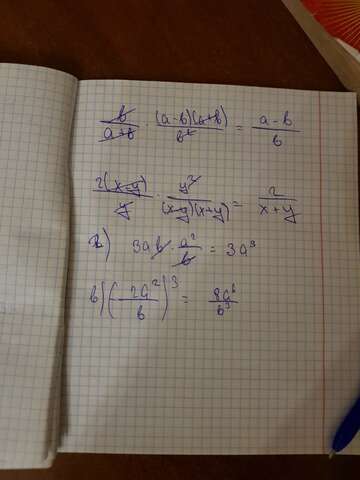 b/(a+b) · (a-b)(a+b)/b² = (a-b)/b
2(x-y)/y · y²/((x-y)(x+y)) = 2/(x+y)
) 3ab · a²/b = 3a³
b) (-2a²/b)³ = 8a⁶/b³